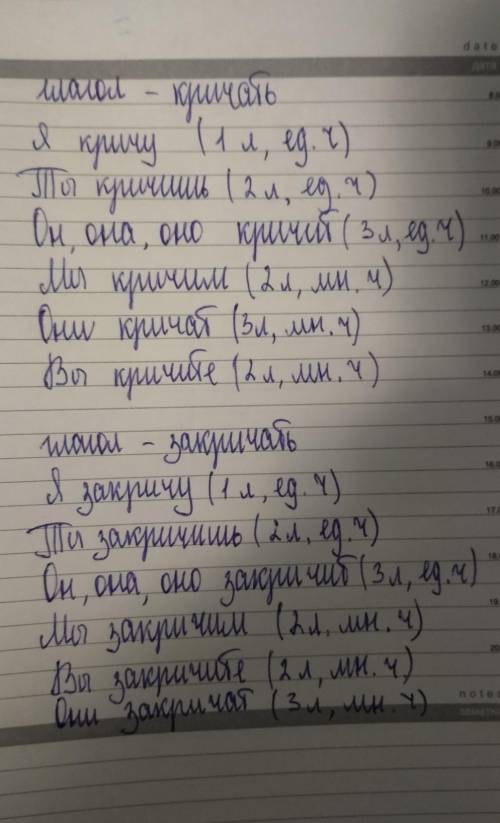 date
ДАТА
глагол - кричать
8.00
Я кричу (1 л, ед. ч)
9.00
Ты кричишь (2 л, ед. ч)
10.00
Он, она, оно кричит (3 л, ед. ч)
11.00
Мы кричим (2 л, мн. ч)
12.00
Они кричат (3 л, мн. ч)
13.00
Вы кричите (2 л, мн. ч)
14.00
15.00
глагол - закричать
16.00
Я закричу (1 л, ед. ч)
17.0
Ты закричишь (2 л, ед. ч)
18.
Он, она, оно закричит (3 л, ед. ч)
19.
Мы закричим (2 л, мн. ч)
20
Вы закричите (2 л, мн. ч)
notes
Они закричат (3 л, мн. ч)
ЗАМЕТКИ